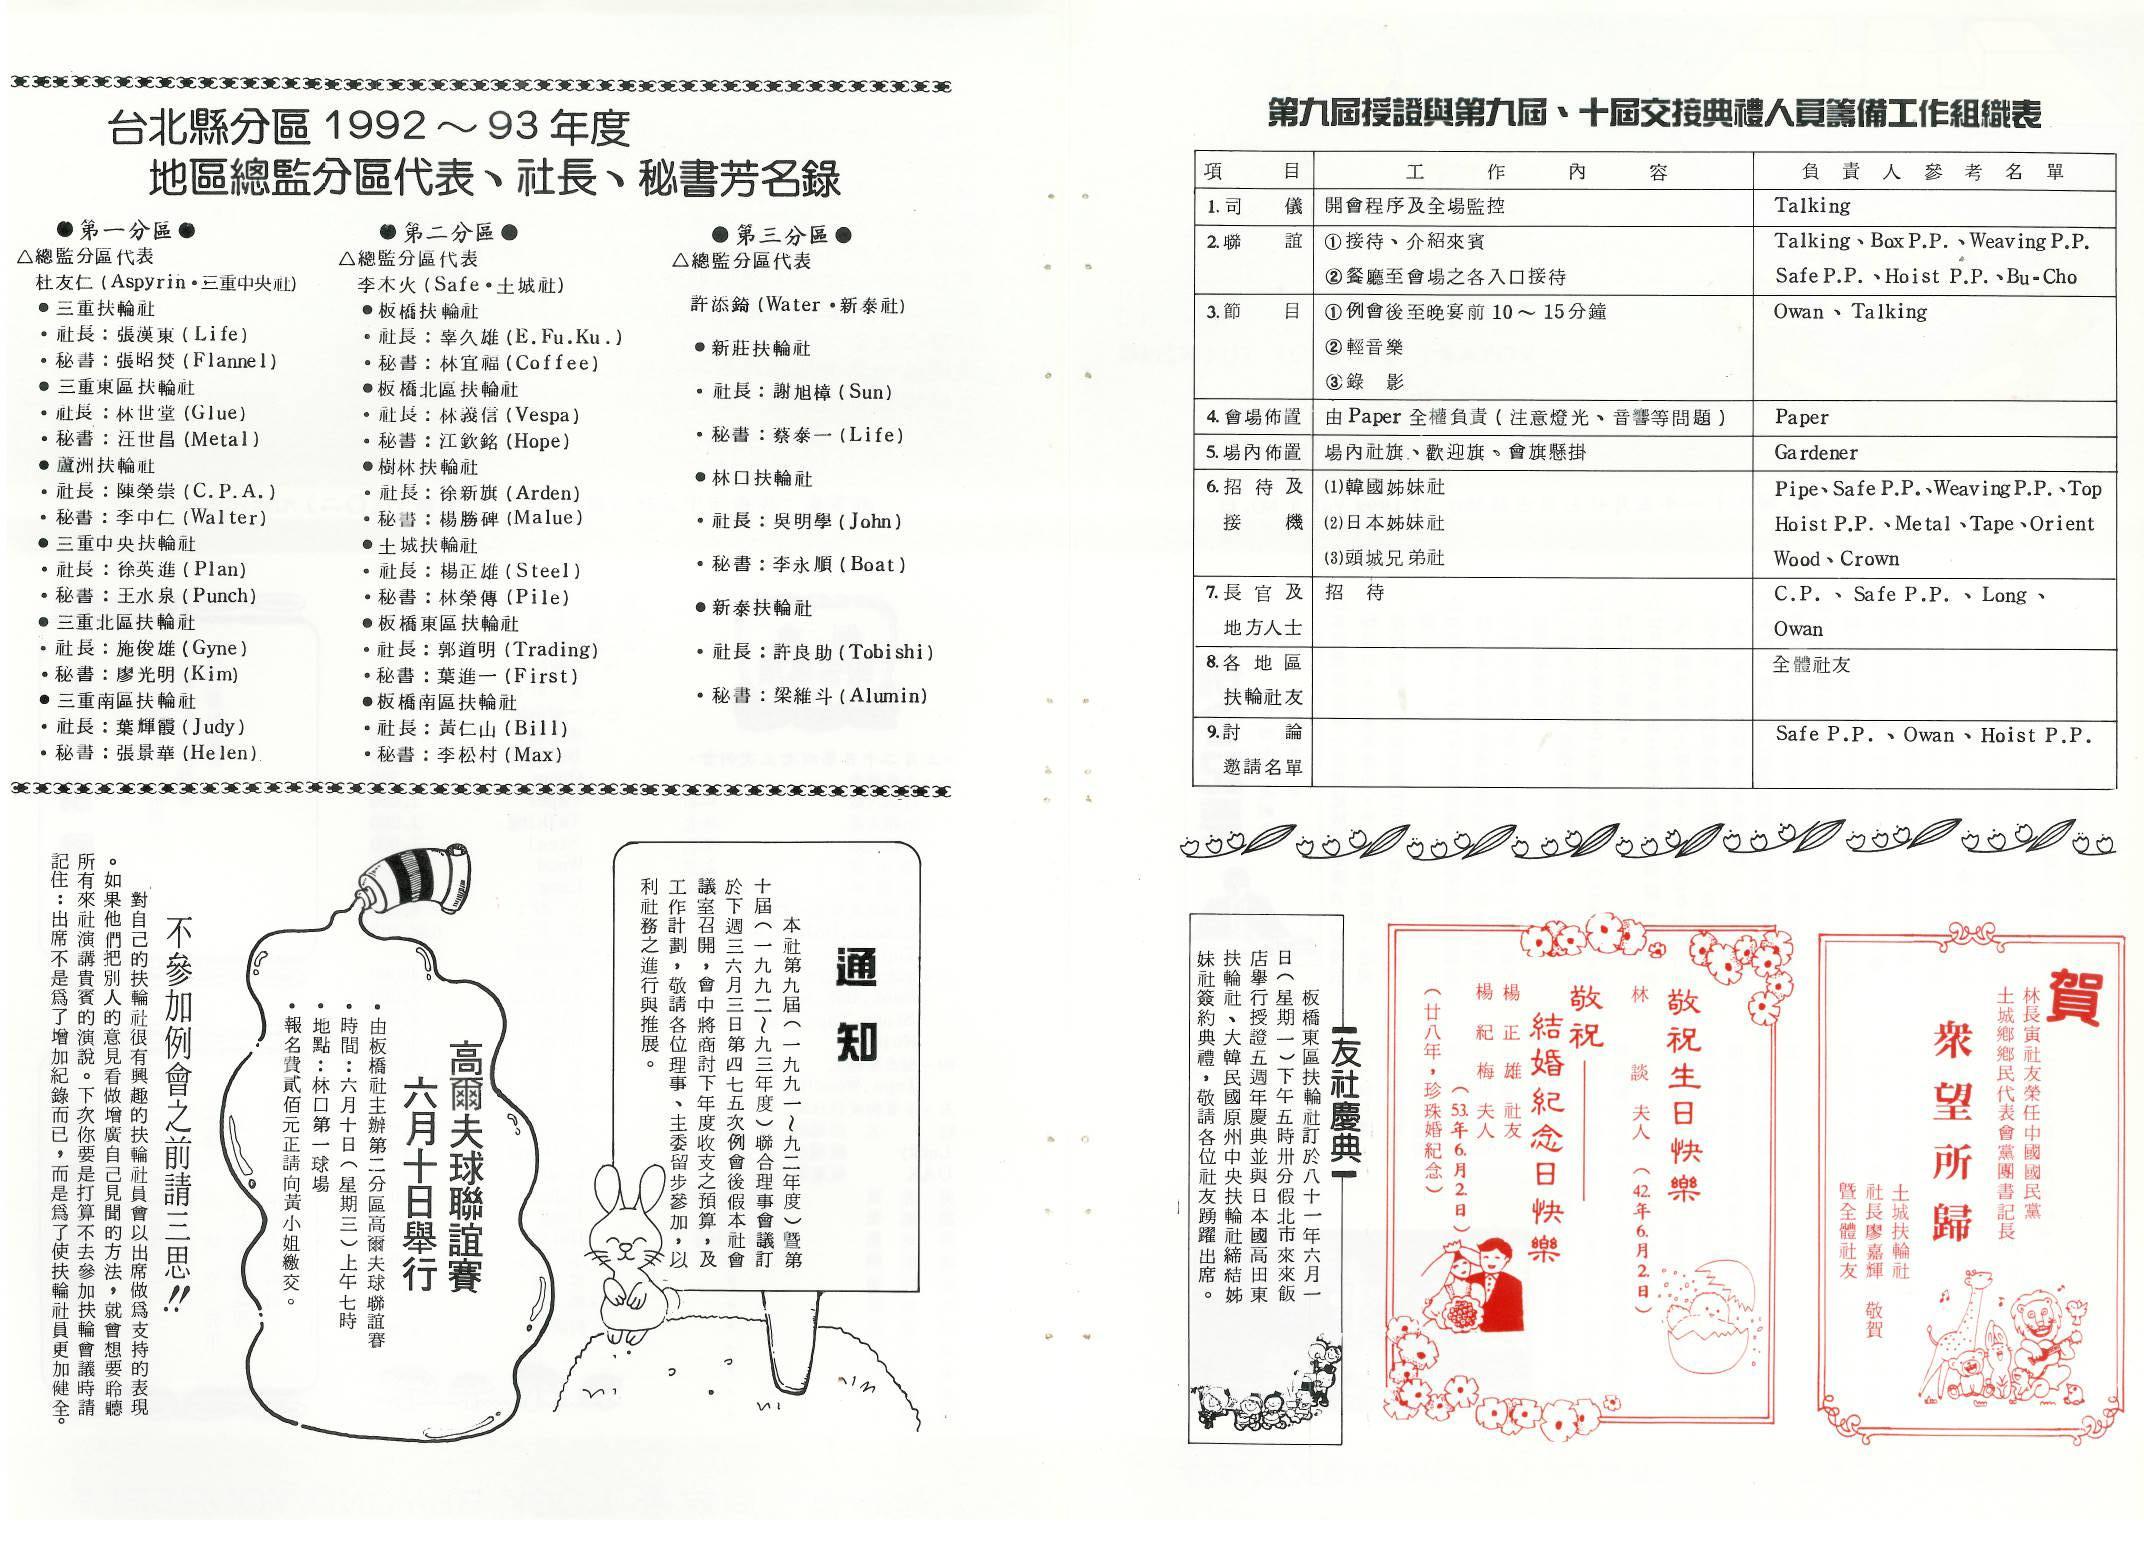 台北縣分區1992～93年度
地區總監分區代表、社長、秘書芳名錄
●第一分區●
△總監分區代表
杜友仁(Aspyrin•三重中央社)
●三重扶輪社
•社長：張漢東(Life)
•秘書：張昭焚(Flannel)
●三重東區扶輪社
•社長：林世堂(Glue)
•秘書：汪世昌(Metal)
●蘆洲扶輪社
•社長：陳榮崇(C.P.A.)
•秘書：李中仁(Walter)
●三重中央扶輪社
•社長：徐英進(Plan)
•秘書：王水泉(Punch)
●三重北區扶輪社
•社長：施俊雄(Gyne)
•秘書：廖光明(Kim)
●三重南區扶輪社
•社長：葉輝霞(Judy)
•秘書：張景華(Helen)
●第二分區●
△總監分區代表
李木火(Safe•土城社)
●板橋扶輪社
•社長：辜久雄(E.Fu.Ku.)
•秘書：林宜福(Coffee)
●板橋北區扶輪社
•社長：林義信(Vespa)
•秘書：江欽銘(Hope)
●樹林扶輪社
•社長：徐新旗(Arden)
•秘書：楊勝碑(Malue)
●土城扶輪社
•社長：楊正雄(Steel)
•秘書：林榮傳(Pile)
●板橋東區扶輪社
•社長：郭道明(Trading)
•秘書：葉進一(First)
●板橋南區扶輪社
•社長：黃仁山(Bill)
•秘書：李松村(Max)
●第三分區●
△總監分區代表
許添錡(Water•新泰社)
●新莊扶輪社
•社長：謝旭樟(Sun)
•秘書：蔡泰一(Life)
●林口扶輪社
•社長：吳明學(John)
•秘書：李永順(Boat)
●新泰扶輪社
•社長：許良助(Tobishi)
•秘書：梁維斗(Alumin)
通知
本社第九屆(一九九一～九二年度)暨第
十屆(一九九二～九三年度)聯合理事會議訂
於下週三六月三日第四七五次例會後假本社會
議室召開，會中將商討下年度收支之預算，及
工作計劃，敬請各位理事、主委留步參加，以
利社務之進行與推展。
高爾夫球聯誼賽
六月十日舉行
•由板橋社主辦第二分區高爾夫球聯誼賽
•時間：六月十日(星期三)上午七時
•地點：林口第一球場
•報名費貳佰元正請向黃小姐繳交。
不參加例會之前請三思!!
對自己的扶輪社很有興趣的扶輪社員會以出席做爲支持的表現
。如果他們把別人的意見看做增廣自己見聞的方法，就會想要聆聽
所有來社演講貴賓的演說。下次你要是打算不去參加扶輪會議時請
記住：出席不是爲了增加紀錄而已，而是爲了使扶輪社員更加健全。
第九屆授證與第九屆、十屆交接典禮人員籌備工作組織表
項目 工作內容 負責人參考名單
1.司儀 開會程序及全場監控 Talking
2.聯誼 ①接待、介紹來賓 Talking、Box P.P.、Weaving P.P.
②餐廳至會場之各入口接待 Safe P.P.、Hoist P.P.、Bu-Cho
3.節目 ①例會後至晚宴前10～15分鐘 Owan、Talking
②輕音樂
③錄影
4.會場佈置 由Paper全權負責(注意燈光、音響等問題) Paper
5.場內佈置 場內社旗、歡迎旗、會旗懸掛 Gardener
6.招待及 (1)韓國姊妹社 Pipe、Safe P.P.、Weaving P.P.、Top
接機 (2)日本姊妹社 Hoist P.P.、Metal、Tape、Orient
(3)頭城兄弟社 Wood、Crown
7.長官及 招待 C.P.、Safe P.P.、Long、
地方人士 Owan
8.各地區 全體社友
扶輪社友
9.討論 Safe P.P.、Owan、Hoist P.P.
邀請名單
賀
林長寅社友榮任中國國民黨
土城鄉鄉民代表會黨團書記長
衆望所歸
土城扶輪社
社長廖嘉輝 敬賀
暨全體社友
敬祝生日快樂
林談夫人(42.年6.月2.日)
敬祝
結婚紀念日快樂
楊正雄社友(53.年6.月2.日)
楊紀梅夫人
(廿八年，珍珠婚紀念)
【友社慶典】
板橋東區扶輪社訂於八十一年六月一
日(星期一)下午五時卅分假北市來來飯
店舉行授證五週年慶典並與日本國高田東
扶輪社、大韓民國原州中央扶輪社締結姊
妹社簽約典禮，敬請各位社友踴躍出席。